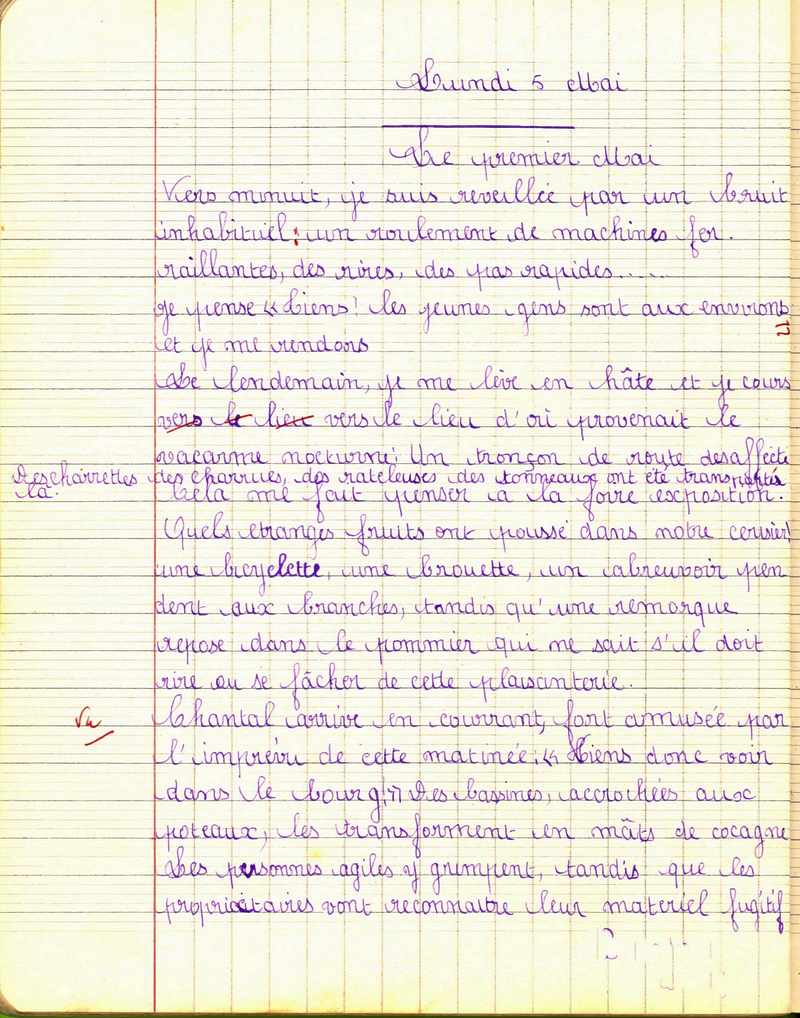 Lundi 5 Mai
Le premier Mai
Vers minuit, je suis reveillée par un bruit
inhabituel : un roulement de machines fer-
raillantes, des rires, des pas rapides......
je pense « tiens ! les jeunes gens sont aux environs »
et je me rendors
Le lendemain, je me lève en hâte et je cours
vers le lieu vers le lieu d'où provenait le
vacarme nocturne : Un tronçon de route desaffecté
Des charrettes des charrues, des rateleuses des tonneaux ont été transportés
là. Cela me fait penser à la foire exposition.
Quels etranges fruits ont poussé dans notre cerisier!
une bicyclette, une brouette, un abreuvoir pen
dent aux branches, tandis qu'une remorque
repose dans le pommier qui ne sait s'il doit
rire ou se fâcher de cette plaisanterie.
Vu
Chantal arrive en courrant, fort amusée par
l'imprévu de cette matinée : « Viens donc voir
dans le bourg ! » Des bassines, accrochées aux
poteaux, les transforment en mâts de cocagne
Les personnes agiles y grimpent, tandis que les
propriétaires vont reconnaitre leur materiel fugitif